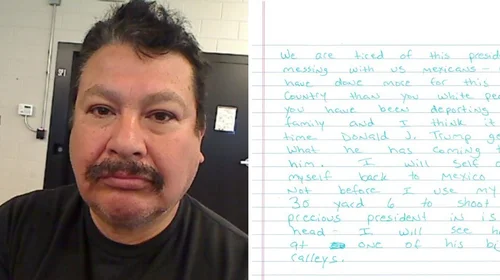 We are tired of this presid
messing with us Mexicans -
have done more for this
country than you white pe
you have been deporting
family and I think it
time Donald J. Trump ge
What he has coming t
him. I will self
myself back to Mexico
Not before I use my
30 yard 6 to shoot
precious president in is
head - I will see h
at one of his bi
ralleys.